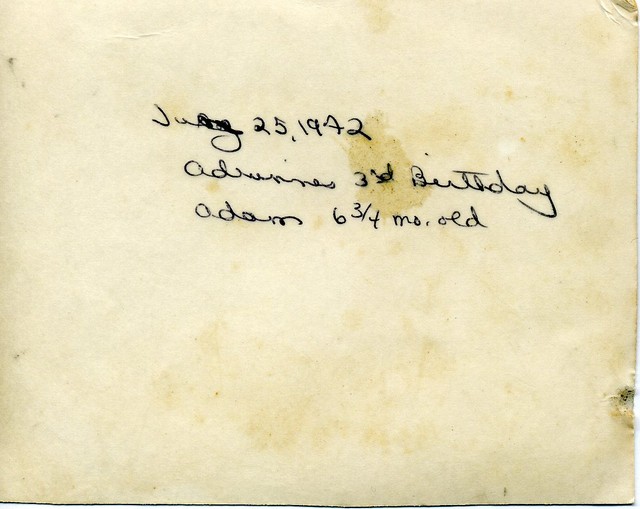 July 25, 1972
Adriennes 3rd Birthday
Adam 6 3/4 mo. old